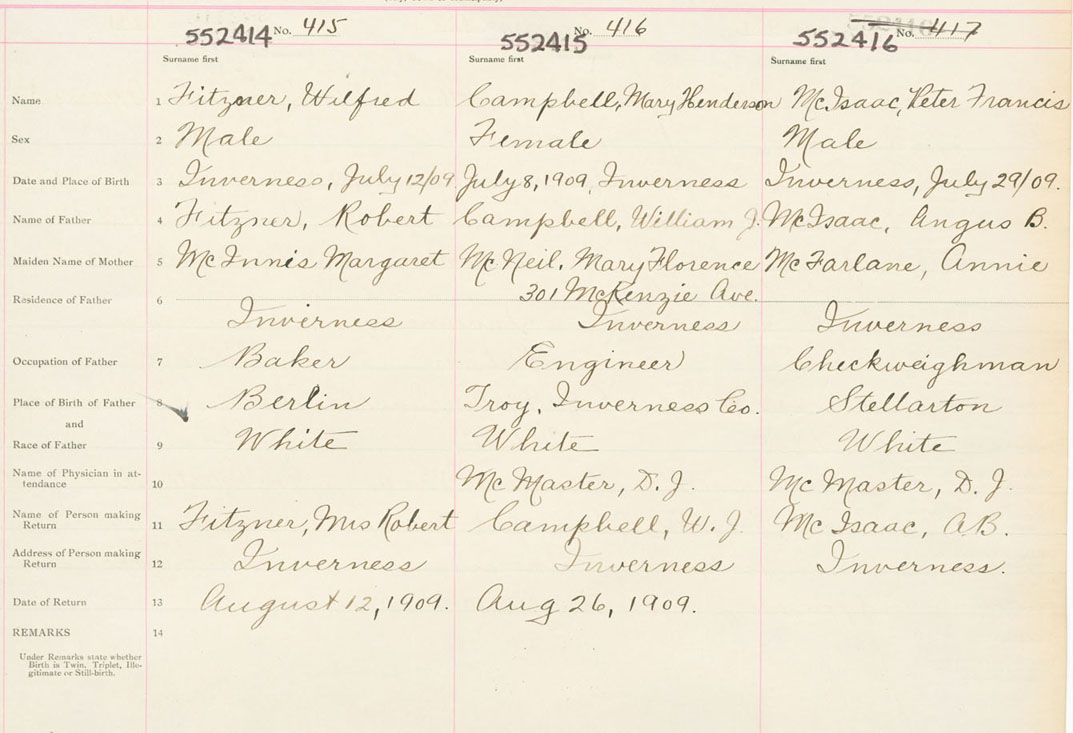 552414 No. 415 552415 No. 416 552416 No. 417
Surname first Surname first Surname first
Name 1 Fitzner, Wilfred Campbell, Mary Henderson McIsaac, Peter Francis
Sex 2 Male Female Male
Date and Place of Birth 3 Inverness, July 12/09 July 8, 1909, Inverness Inverness, July 29/09.
Name of Father 4 Fitzner, Robert Campbell, William J. McIsaac, Angus B.
Maiden Name of Mother 5 McInnis Margaret McNeil, Mary Florence McFarlane, Annie
301 McKenzie Ave.
Residence of Father 6 Inverness Inverness Inverness
Occupation of Father 7 Baker Engineer Checkweighman
Place of Birth of Father 8 Berlin Troy, Inverness Co. Stellarton
and
Race of Father 9 White White White
Name of Physician in at-
tendance 10 McMaster, D. J. McMaster, D. J.
Name of Person making
Return 11 Fitzner, Mrs Robert Campbell, W. J. McIsaac, A.B.
Address of Person making
Return 12 Inverness Inverness Inverness.
Date of Return 13 August 12, 1909. Aug 26, 1909.
REMARKS 14
Under Remarks state whether
Birth is Twin, Triplet, Ille-
gitimate or Still-birth.